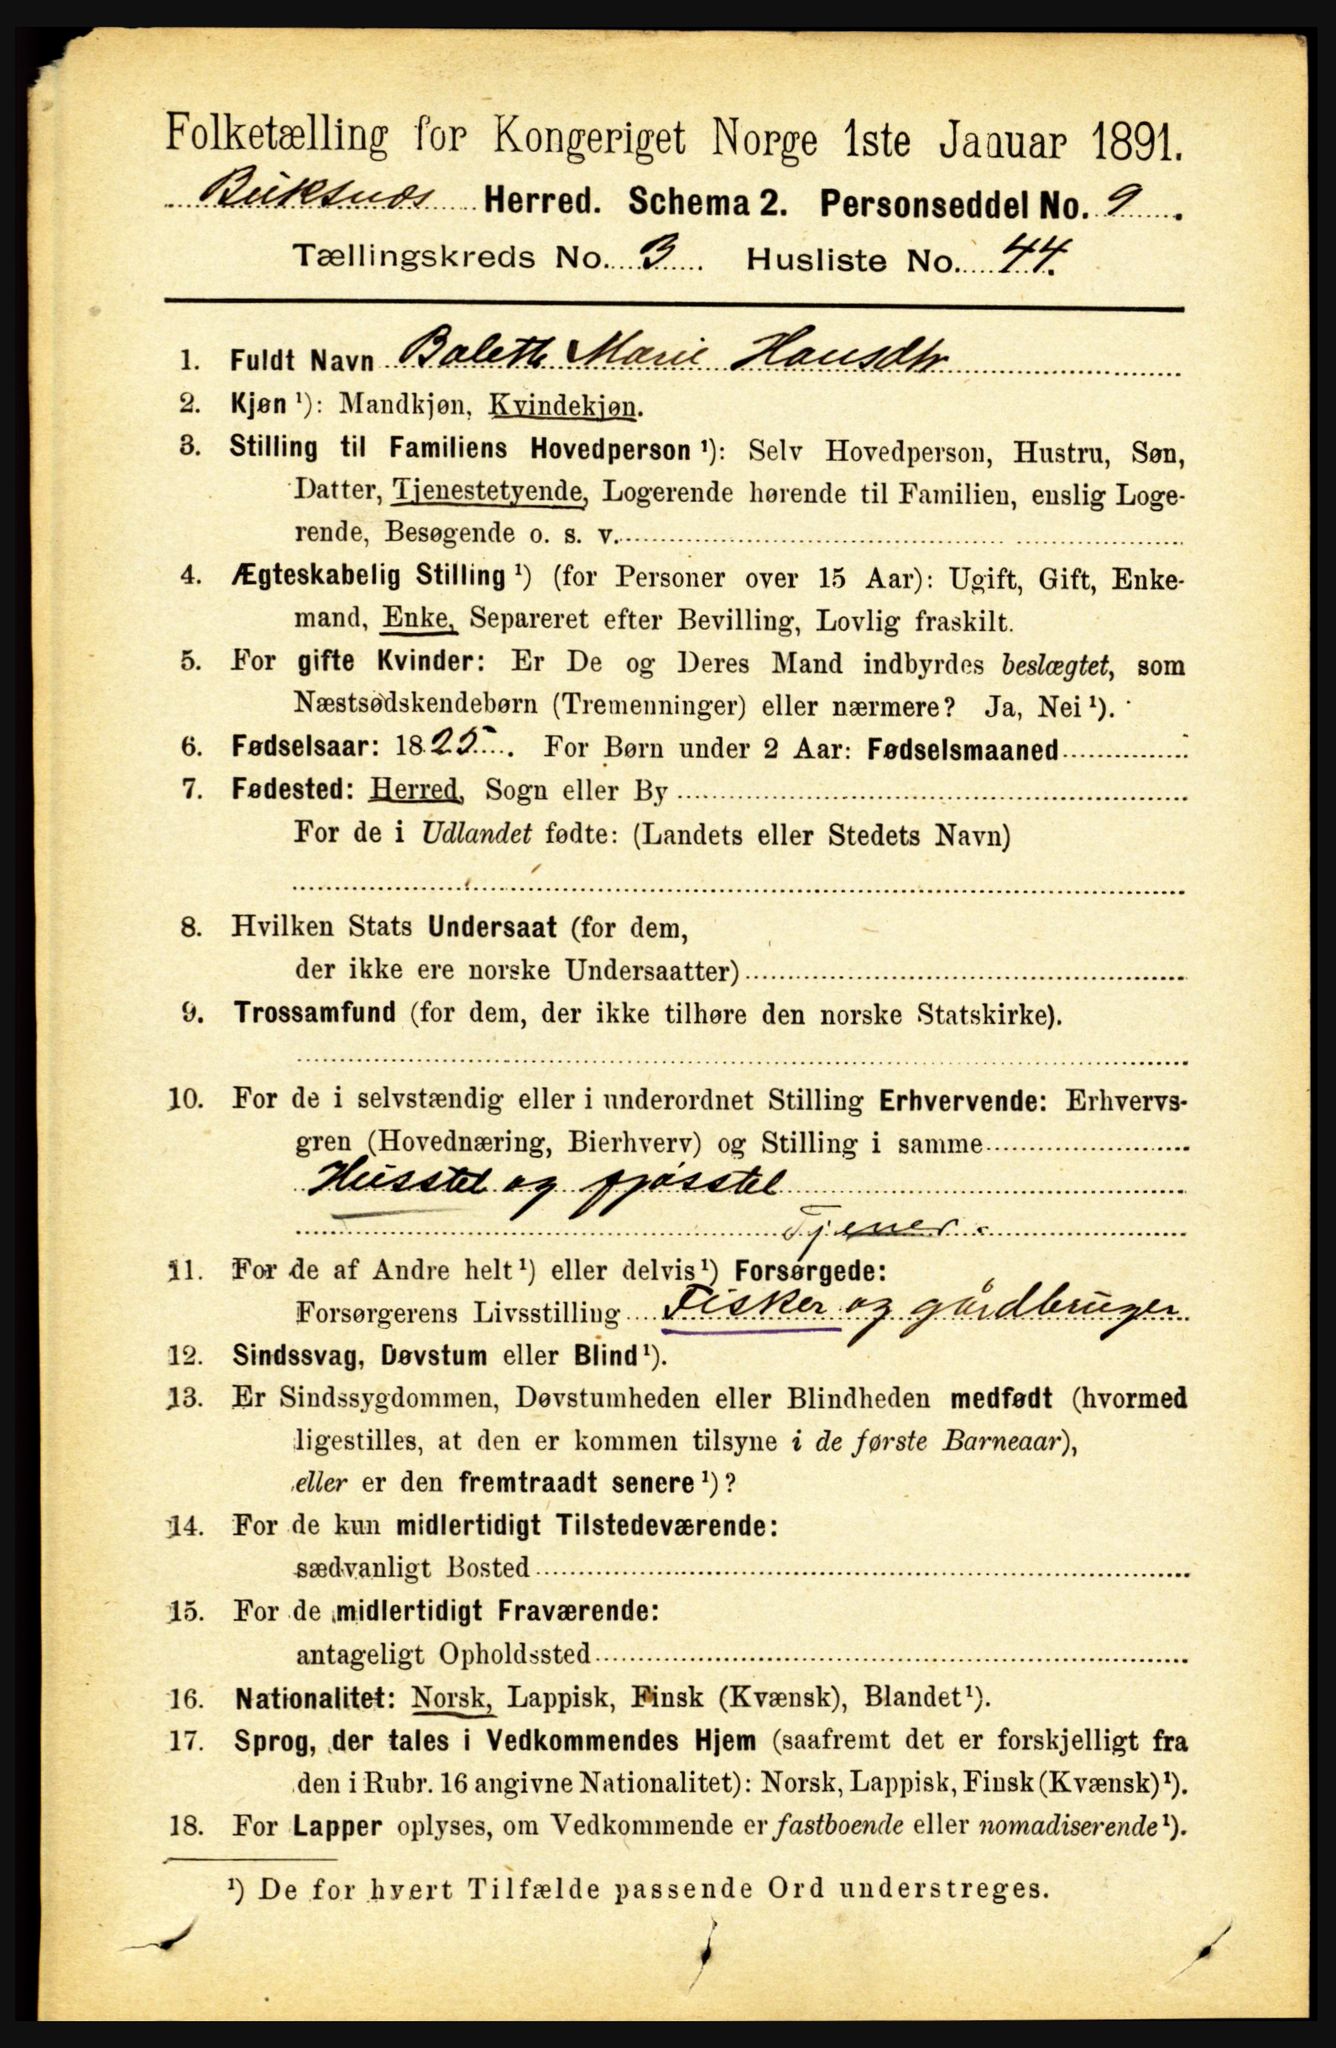 Folketælling for Kongeriget Norge 1ste Januar 1891.
Buksnæs Herred. Schema 2. Personseddel No. 9.
Tællingskreds No. 3 Husliste No. 44.
1. Fuldt Navn Bolette Marie Hansdtr
2. Kjøn ¹): Mandkjøn, Kvindekjøn.
3. Stilling til Familiens Hovedperson ¹): Selv Hovedperson, Hustru, Søn,
Datter, Tjenestetyende, Logerende hørende til Familien, enslig Loge-
rende, Besøgende o. s. v.
4. Ægteskabelig Stilling ¹) (for Personer over 15 Aar): Ugift, Gift, Enke-
mand, Enke, Separeret efter Bevilling, Lovlig fraskilt.
5. For gifte Kvinder: Er De og Deres Mand indbyrdes beslægtet, som
Næstsødskendebørn (Tremenninger) eller nærmere? Ja, Nei ¹).
6. Fødselsaar: 1825. For Børn under 2 Aar: Fødselsmaaned
7. Fødested: Herred, Sogn eller By
For de i Udlandet fødte: (Landets eller Stedets Navn)
8. Hvilken Stats Undersaat (for dem,
der ikke ere norske Undersaatter)
9. Trossamfund (for dem, der ikke tilhøre den norske Statskirke).
10. For de i selvstændig eller i underordnet Stilling Erhvervende: Erhvervs-
gren (Hovednæring, Bierhverv) og Stilling i samme
Husstel og fjøsstel
Tjener
11. For de af Andre helt ¹) eller delvis ¹) Forsørgede:
Forsørgerens Livsstilling Fisker og gårdbruger
12. Sindssvag, Døvstum eller Blind ¹).
13. Er Sindssygdommen, Døvstumheden eller Blindheden medfødt (hvormed
ligestilles, at den er kommen tilsyne i de første Barneaar),
eller er den fremtraadt senere ¹)?
14. For de kun midlertidigt Tilstedeværende:
sædvanligt Bosted
15. For de midlertidigt Fraværende:
antageligt Opholdssted
16. Nationalitet: Norsk, Lappisk, Finsk (Kvænsk), Blandet ¹).
17. Sprog, der tales i Vedkommendes Hjem (saafremt det er forskjelligt fra
den i Rubr. 16 angivne Nationalitet): Norsk, Lappisk, Finsk (Kvænsk) ¹).
18. For Lapper oplyses, om Vedkommende er fastboende eller nomadiserende ¹).
¹) De for hvert Tilfælde passende Ord understreges.